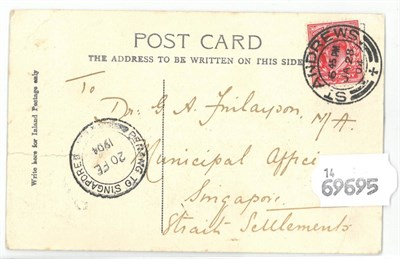 POST CARD
THE ADDRESS TO BE WRITTEN ON THIS SIDE
Write here for Inland Postage only
ST ANDREWS
To
Dr. G. A. Finlayson. M/A.
Municipal Office
Singapore.
Strait Settlements
PENANG TO SINGAPORE
20 FE
1904
14
69695